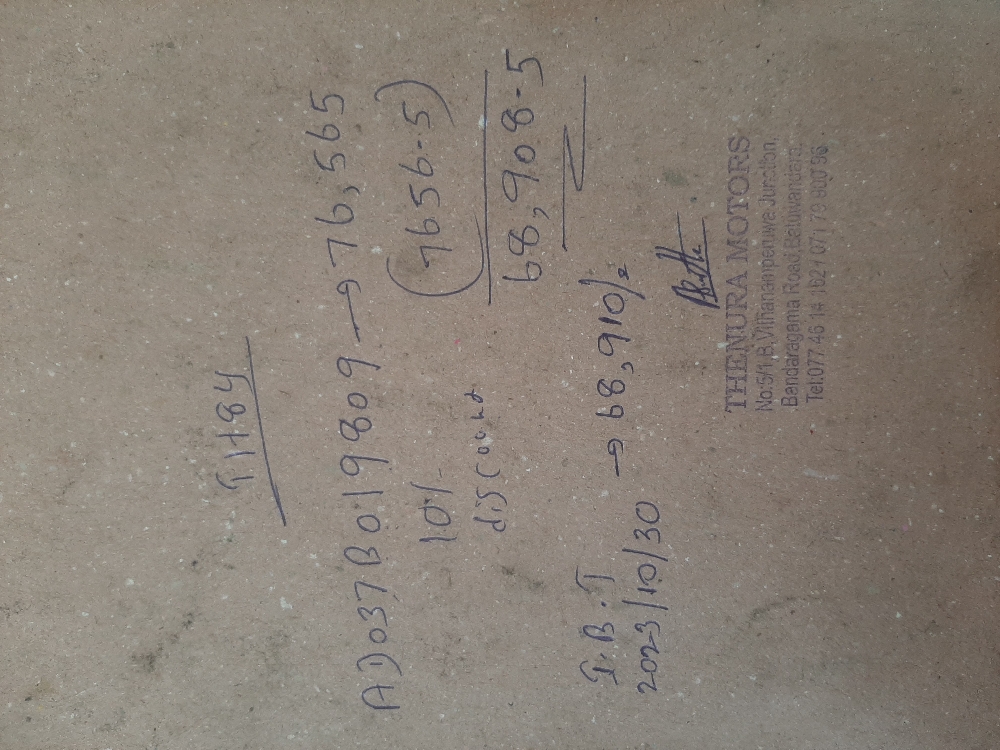 T1184
AD037B019809 → 76,565
10%
discount
(7656-5)
68,908-5
I.B.T
2023/10/30
→ 68,910/=
THENURA MOTORS
No:5/1,B,Vithanampenuwa Junction,
Bandaragama Road,Batuwandara.
Tel:077 46 14 162 / 071 79 900 96